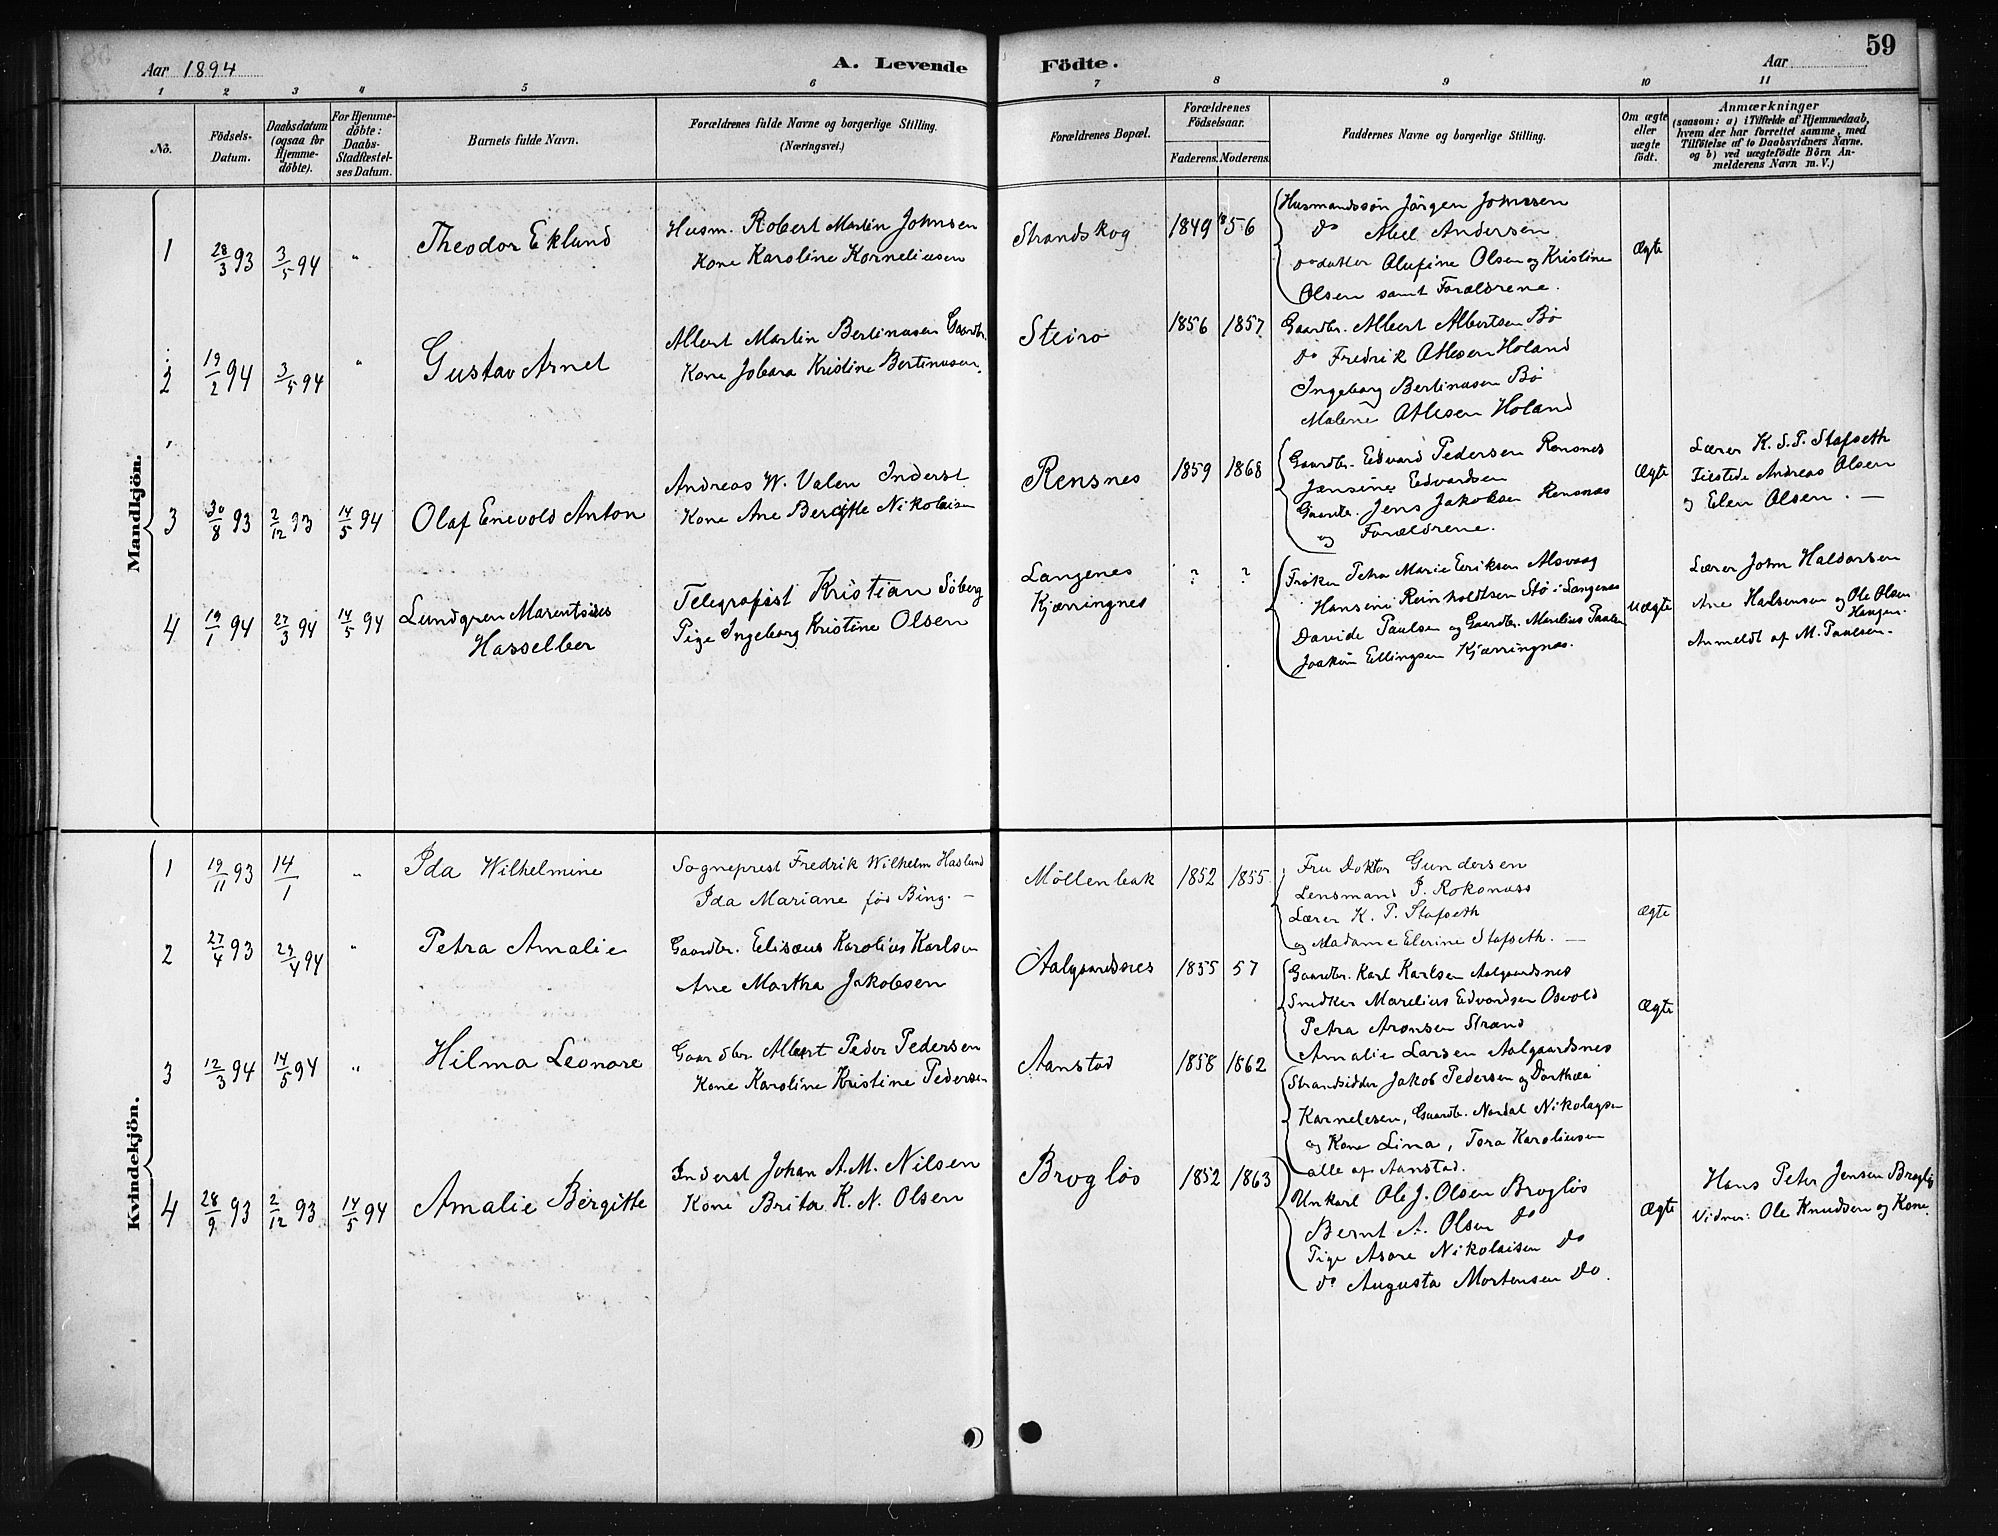 59
Aar 1894 A. Levende Födte. Aar
1 2 3 4 5 6 7 8 9 10 11
No.
Födsels-Datum.
Daabsdatum (ogsaa for Hjemme-döbte).
For Hjemme-döbte: Daabs-Stadfæstel-ses Datum.
Barnets fulde Navn.
Forældrenes fulde Navne og borgerlige Stilling. (Næringsvei.)
Forældrenes Bopæl.
Forældrenes Födselsaar.
Faderens. Moderens.
Faddernes Navne og borgerlige Stilling.
Om ægte eller uægte födt.
Anmærkninger
(saasom: a) i Tilfælde af Hjemmedaab, hvem der har forrettet samme, med Tilföielse af to Daabsvidners Navne. og b) ved uægtefödte Börn An-melderens Navn m. V.)
Mandkjön.
1 28/3 93 3/5 94 " Theodor Eklund
Husm. Robert Martin Johnsen
Kone Karoline Korneliusen
Strandskog 1849 1856
Husmandssön Jörgen Johnsen
Do Abel Andersen
Do datter Olufine Olsen og Kristine
Olsen samt Forældrene.
Ægte
2 19/2 94 3/5 94 " Gustav Arnet
Albert Martin Bertinusen Gaardbr.
Kone Jobara Kristine Bertinusen.
Steiro 1856 1857
Gaardbr. Albert Albertsen Bö
Do Fredrik Atlesen Holand
Ingeborg Bertinusen Bö
Malene Atlesen Holand
3 30/8 93 2/12 93 14/5 94 Olaf Enevold Anton
Andreas W. Valen Inderst
Kone Ane Bergitte Nikolaisen
Rensnes 1859 1868
Gaardbr. Edvard Pedersen Rensnes
Jensine Edvardsen
Gaardbr. Jens Jakobsen Rensnes
og Forældrene.
Ægte
Lærer K. S. P. Stafseth
Tilstede Andreas Olsen
og Elen Olsen. —
4 19/1 94 27/3 94 14/5 94 Lundgren Marentsius
Hasselber
Telegrafist Kristian Söberg
Pige Ingeborg Kristine Olsen
Langenes
Kjærringnes
? ?
Fröken Petra Marie Eriksen Alsvaag
Hansine Reinholdtsen Stö i Langenes
Davide Paulsen og Gaardbr. Merilius Paulsen
Joakim Ellingsen Kjærringnes.
Uægte
Lærer John Haldorsen
Ane Harlsensen og Ole Olsen
Haugen.
Anmeldt af M. Paulsen.
Kvindekjön.
1 19/11 93 14/1 " Ida Wilhelmine
Sogneprest Fredrik Wilhelm Haslund
Ida Mariane föd Bing. —
Möllenbak 1852 1855
Fru Doktor Gundersen
Lensmand P. Rokonæss
Lærer K. P. Stafseth
og Madame Elerine Stafseth. —
Ægte
2 27/4 93 29/4 94 " Petra Amalie
Gaardbr. Elisæus Karolius Karlsen
Ane Martha Jakobsen
Aalgaardsnes 1855 57
Gaardbr. Karl Karlsen Aalgaardsnes
Snedker Marelius Edvardsen Osvold
Petra Aronsen Strand
Amalie Larsen Aalgaardsnes
Ægte
3 12/3 94 14/5 94 " Hilma Leonore
Gaardbr Albert Peder Pedersen
Kone Karoline Kristine Pedersen
Aanstad 1858 1862
Strandsidder Jakob Pedersen og Dorthea
Kornelesen, Gaardbr. Nordal Nikolaysen
og Kone Lina, Tora Karoliusen
alle af Aanstad.
4 28/9 93 2/12 93 14/5 94 Amalie Bergitte
Inderst Johan A. M. Nilsen
Kone Brita K. N. Olsen
Broglös 1852 1863
Unkarl Ole J. Olsen Broglös
Bernt A. Olsen Do
Pige Asore Nikolaisen Do
Do Augusta Mortensen Do.
Ægte
Hans Peter Jensen Broglös
Vidner: Ole Knudsen og Kone.